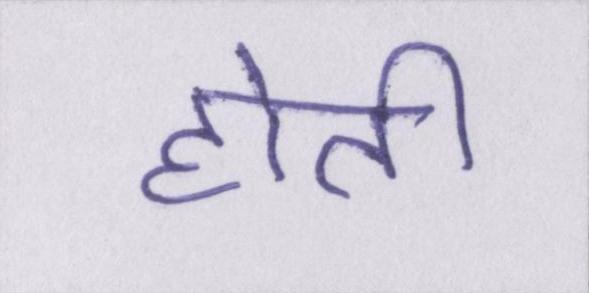 होती